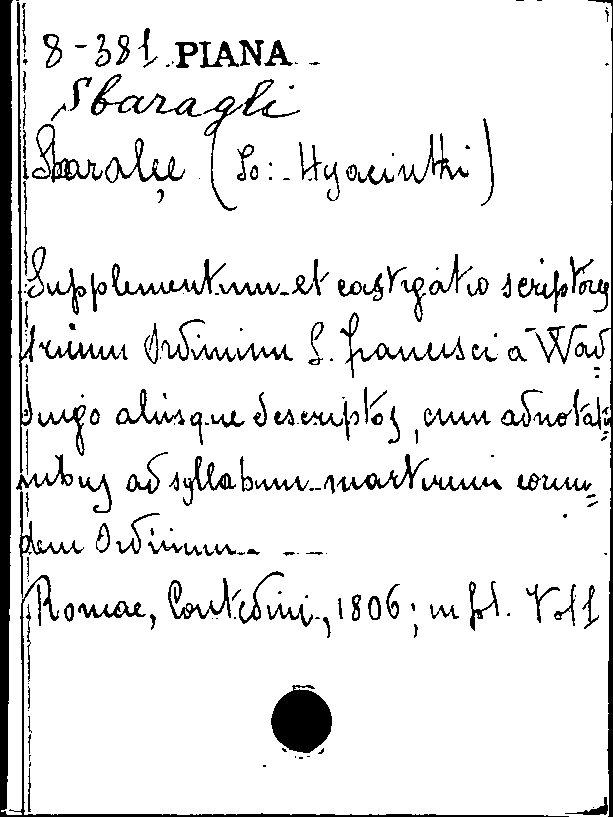 8-381 PIANA
Sbaragli
Sbaraleæ (Jo: Hyacinthi)
Supplementum et castigatio scriptores
trium Ordinum S. Francisci a Wad=
dingo aliisque descriptos, cum adnotatio=
nibus ad syllabum martirum eorum=
dem Ordinum
Romae, Contedini, 1806; in fol. Vol 1